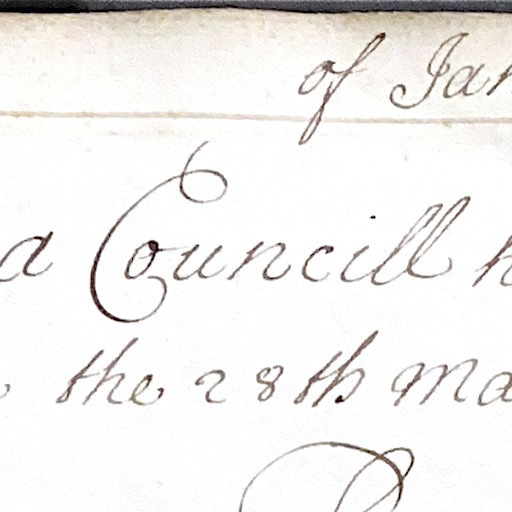 of Jan
a Councill h
the 28th Ma
P